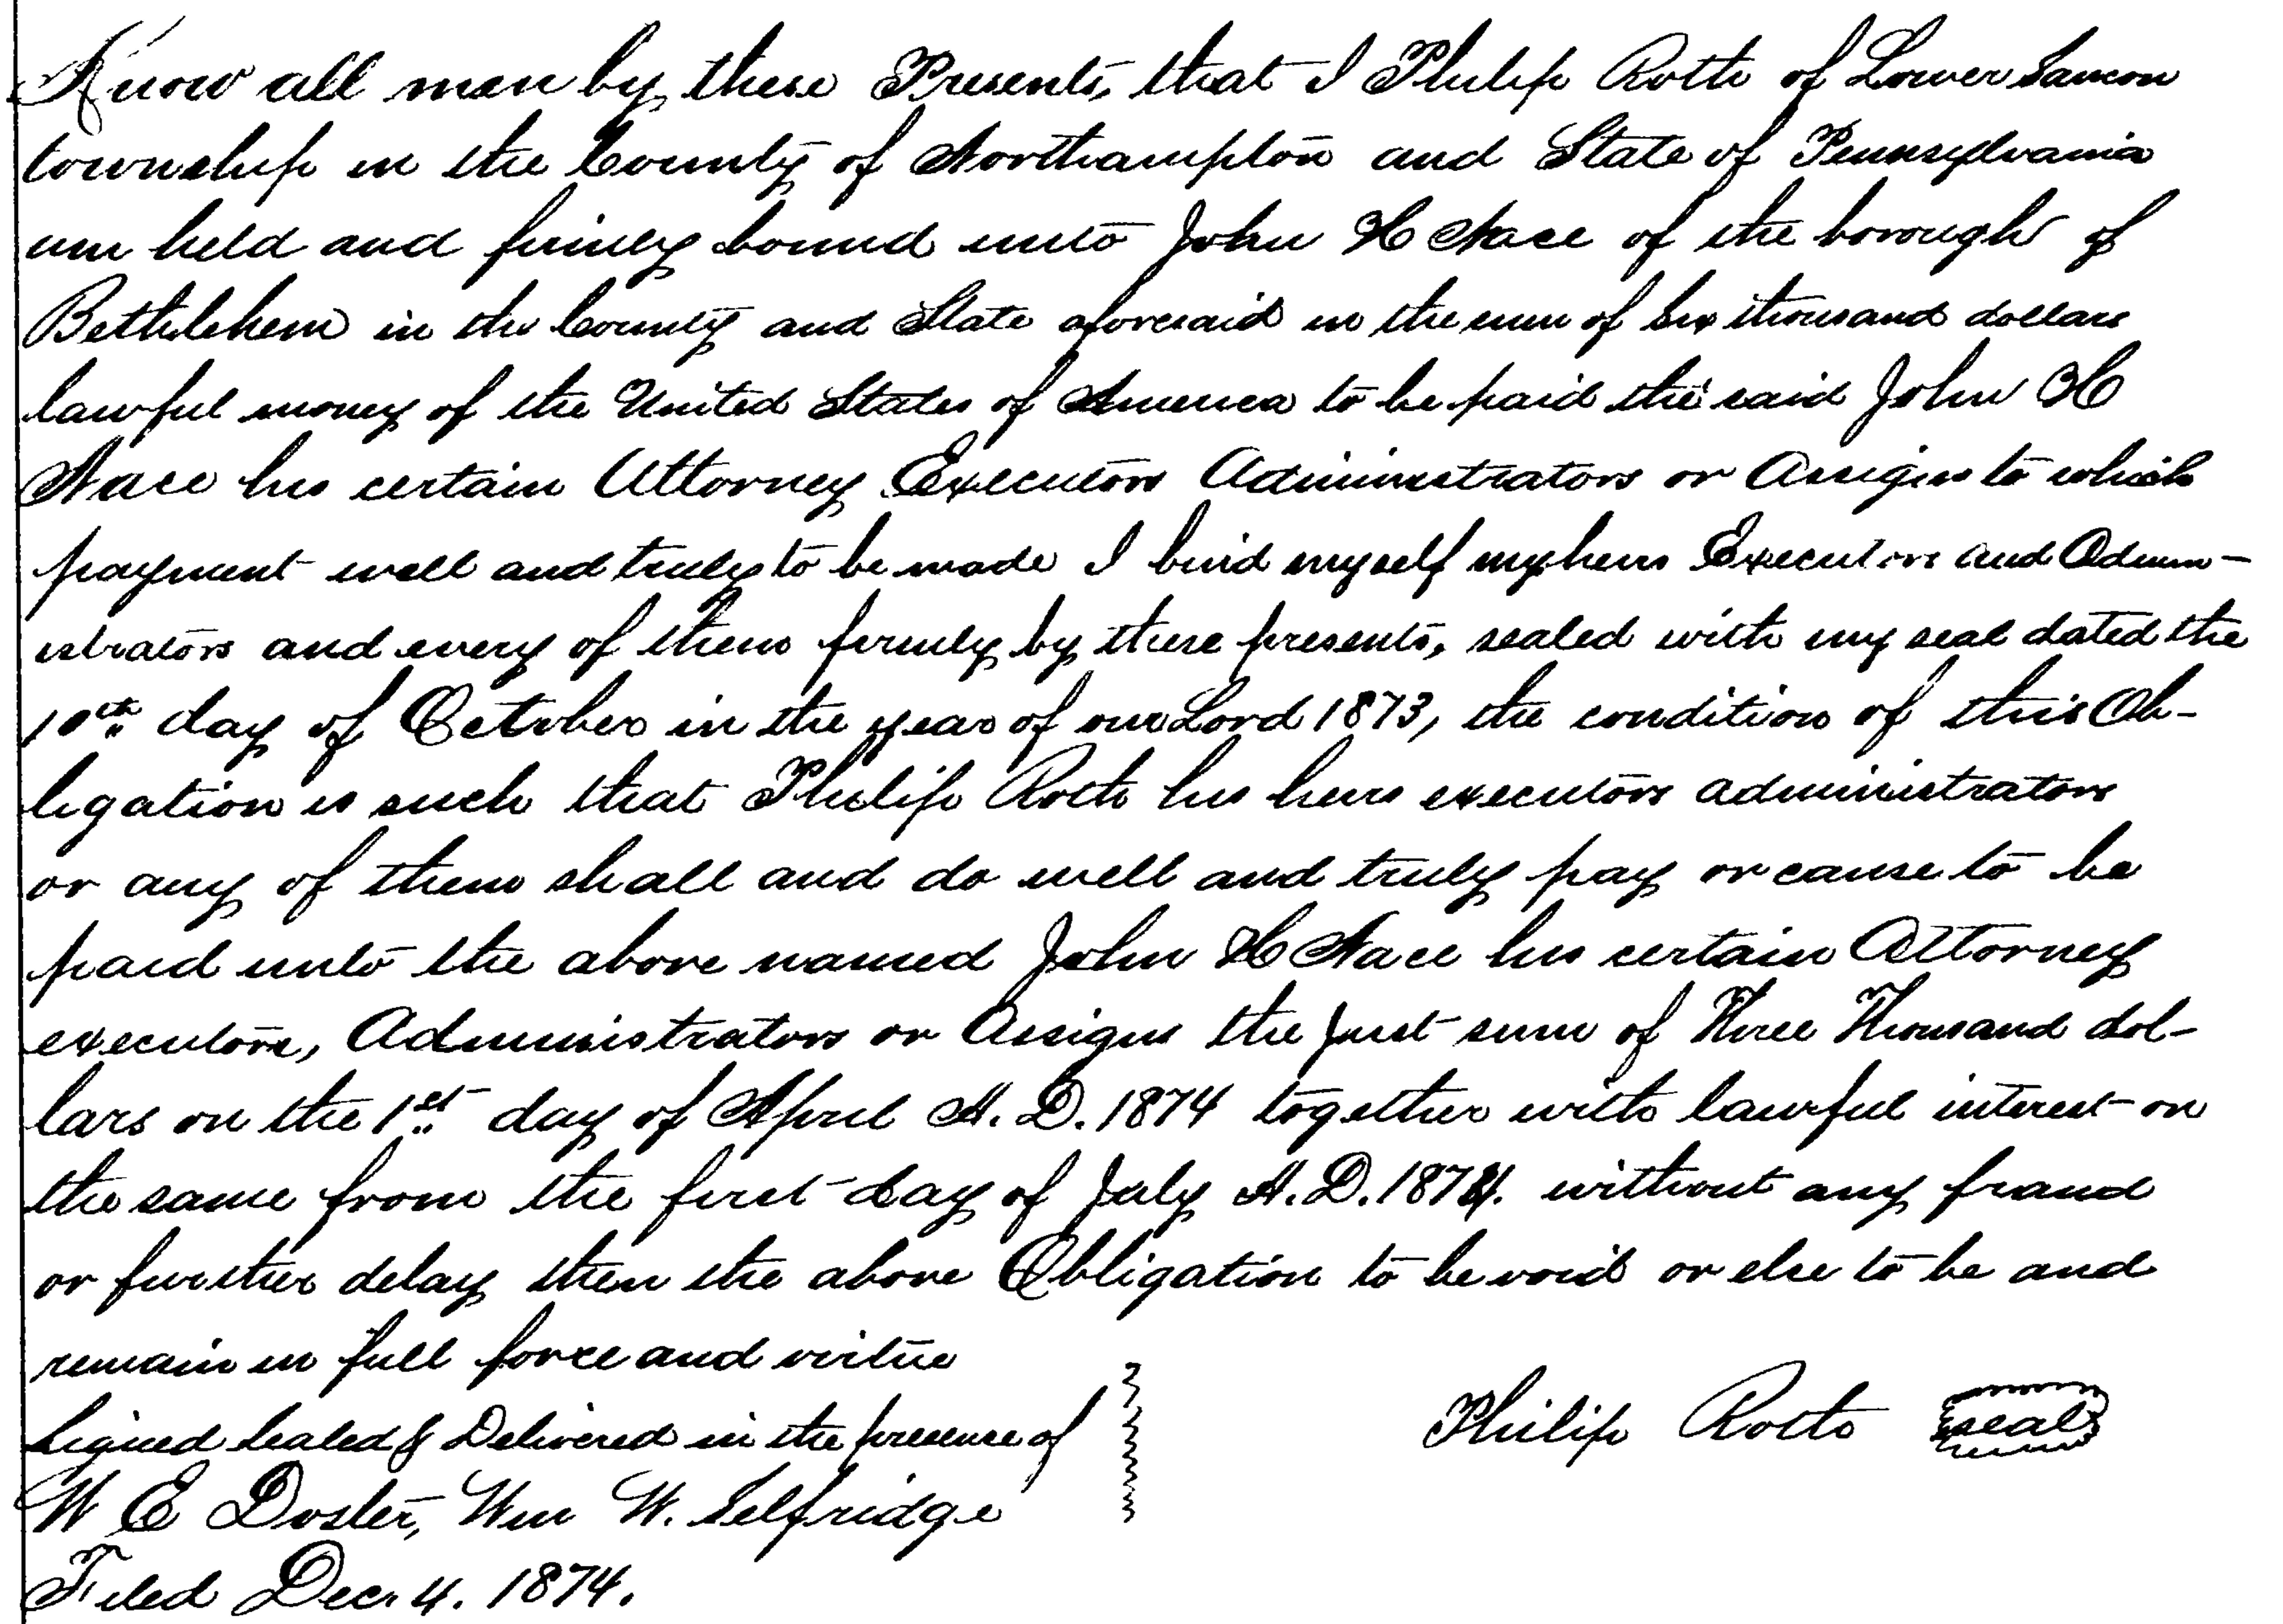 Know all men by these Presents, that I Philip Roth of Lower Saucon
township in the County of Northampton and State of Pennsylvania
am held and firmly bound unto John H Nace of the borough of
Bethlehem in the County and State aforesaid in the sum of Six thousand dollars
lawful money of the United States of America to be paid the said John H
Nace his certain Attorney Executors Administrators or Assigns to which
payment well and truly to be made I bind myself my heirs Executors and Admin-
istrators and every of them firmly by these presents, sealed with my seal dated the
10th day of October in the year of our Lord 1873, the condition of this Ob-
ligation is such that Philip Roth his heirs executors administrators
or any of them shall and do well and truly pay or cause to be
paid unto the above named John H Nace his certain Attorney
executors, Administrators or Assigns the just sum of Three Thousand dol-
lars on the 1st day of April A.D. 1874 together with lawful interest on
the same from the first day of July A.D. 1874. without any fraud
or further delay then the above Obligation to be void or else to be and
remain in full force and virtue
Signed Sealed & Delivered in the presence of
Philip Roth seal
W E Doster, Wm W. Selfridge
Filed Dec. 4. 1874.